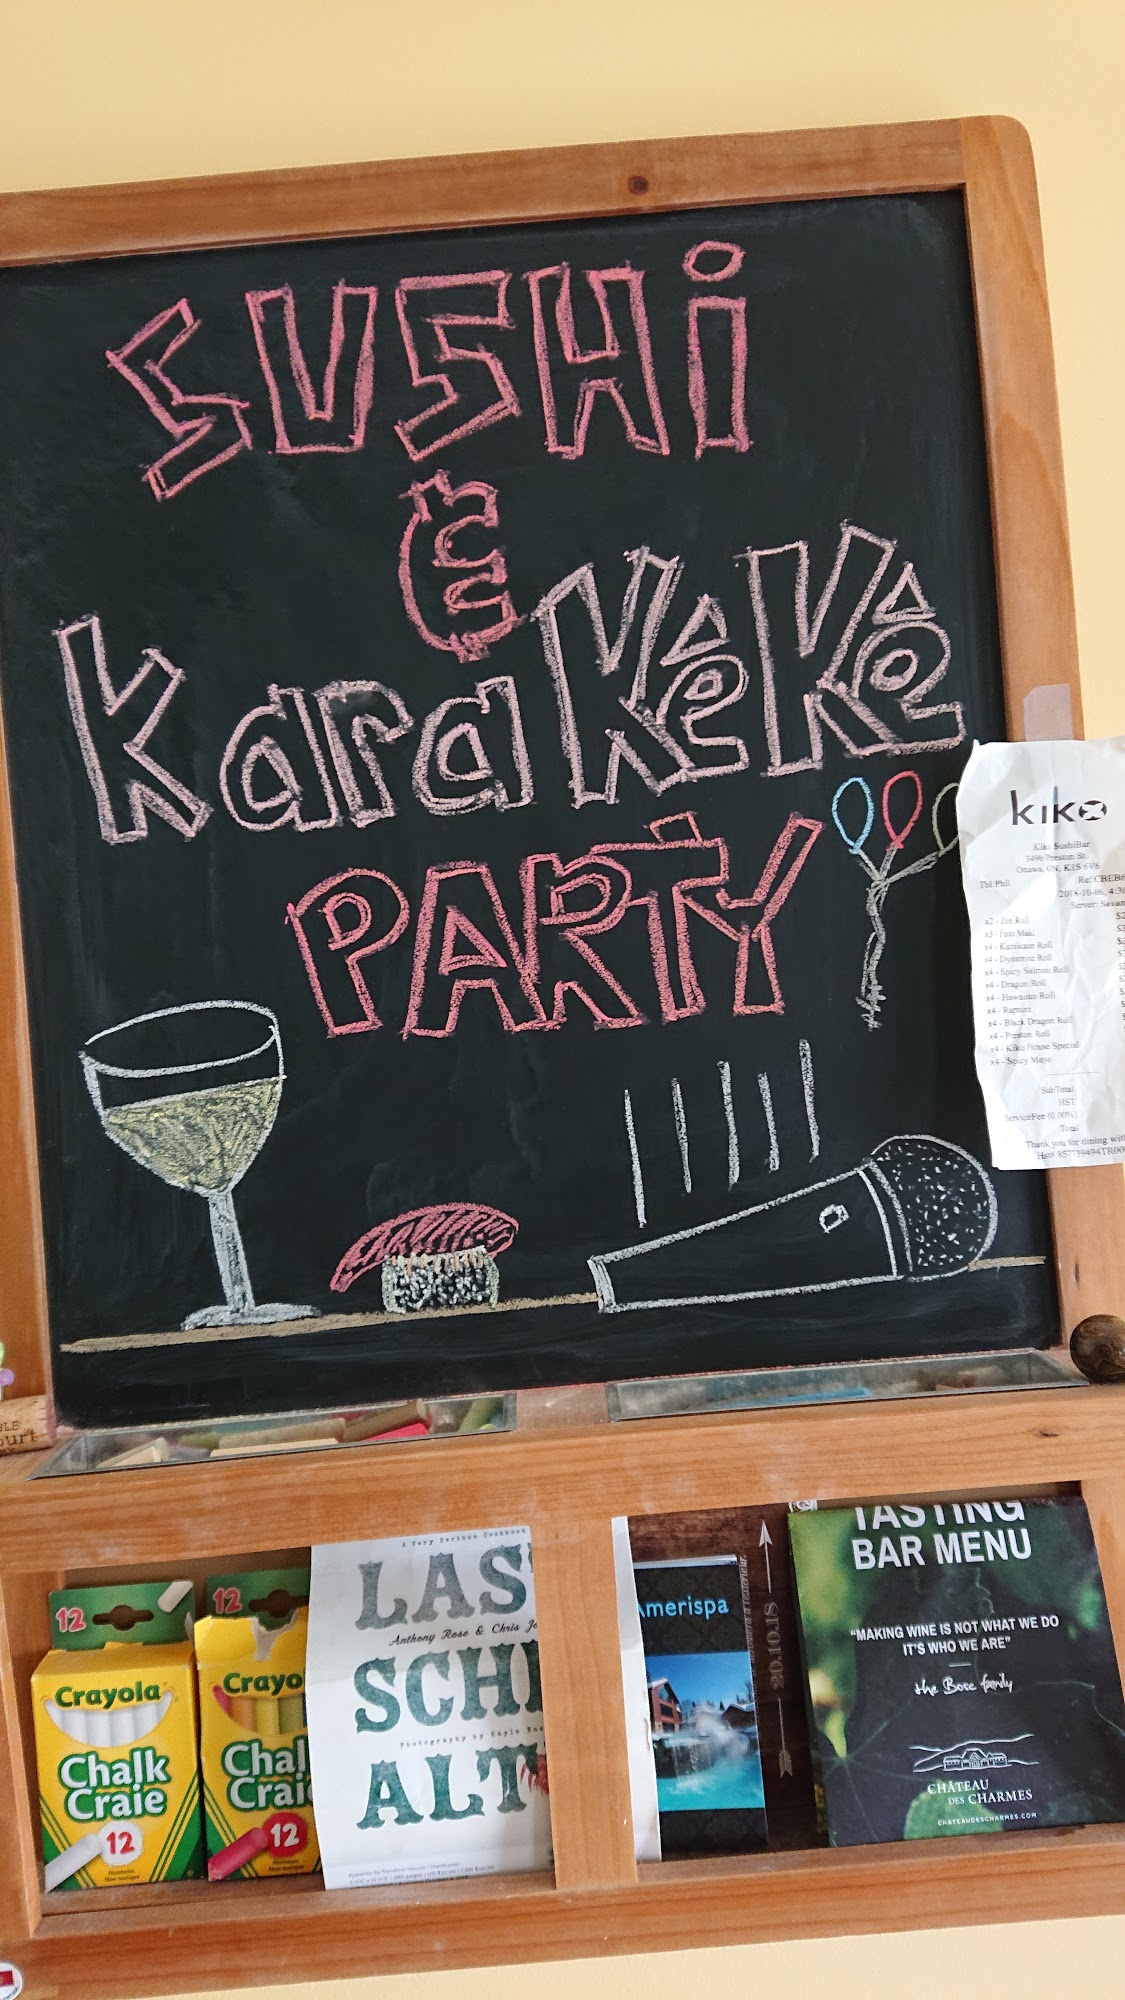 SUSHi
&
KaraKêKê
PARTY
kiko
Kiko SushiBar
349b Preston St.
Ottawa, ON, K1S
Tbl:Phil
2018-10-06, 4:3
Server: Savan
x2 - Zen Roll
x3 - Futo Maki
x4 - Kamikaze Roll
x4 - Dynamite Roll
x4 - Spicy Salmon Roll
x4 - Dragon Roll
x4 - Hawaiian Roll
x4 - Rapture
x4 - Black Dragon Roll
x4 - Preston Roll
x4 - Kiko House Special
x4 - Spicy Mayo
SubTotal
HST
ServiceFee (0.00%)
Total
Thank you for dining with
Hst# 857739494TR00
12
Crayola
Chalk
Craie
12
Nontoxic
Non toxique
12
Crayo
Chal
Crai
12
Nontoxic
Non toxique
A Very Serious Cookbook
LAS
Anthony Rose & Chris Jo
SCH
Photography by Kayla
ALT
merispa
20.10.18
TASTING
BAR MENU
"MAKING WINE IS NOT WHAT WE DO
IT'S WHO WE ARE"
the Bosc family
CHÂTEAU
DES CHARMES
CHATEAUDESCHARMES.COM